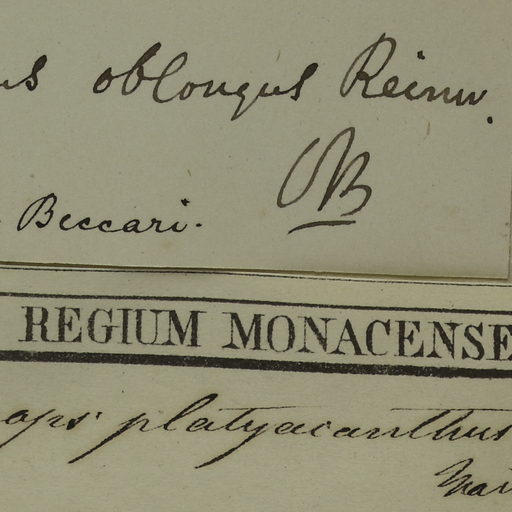 us oblongus Reinw.
OB
Beccari.
REGIUM MONACENSE
ops platyacanthus
Mart